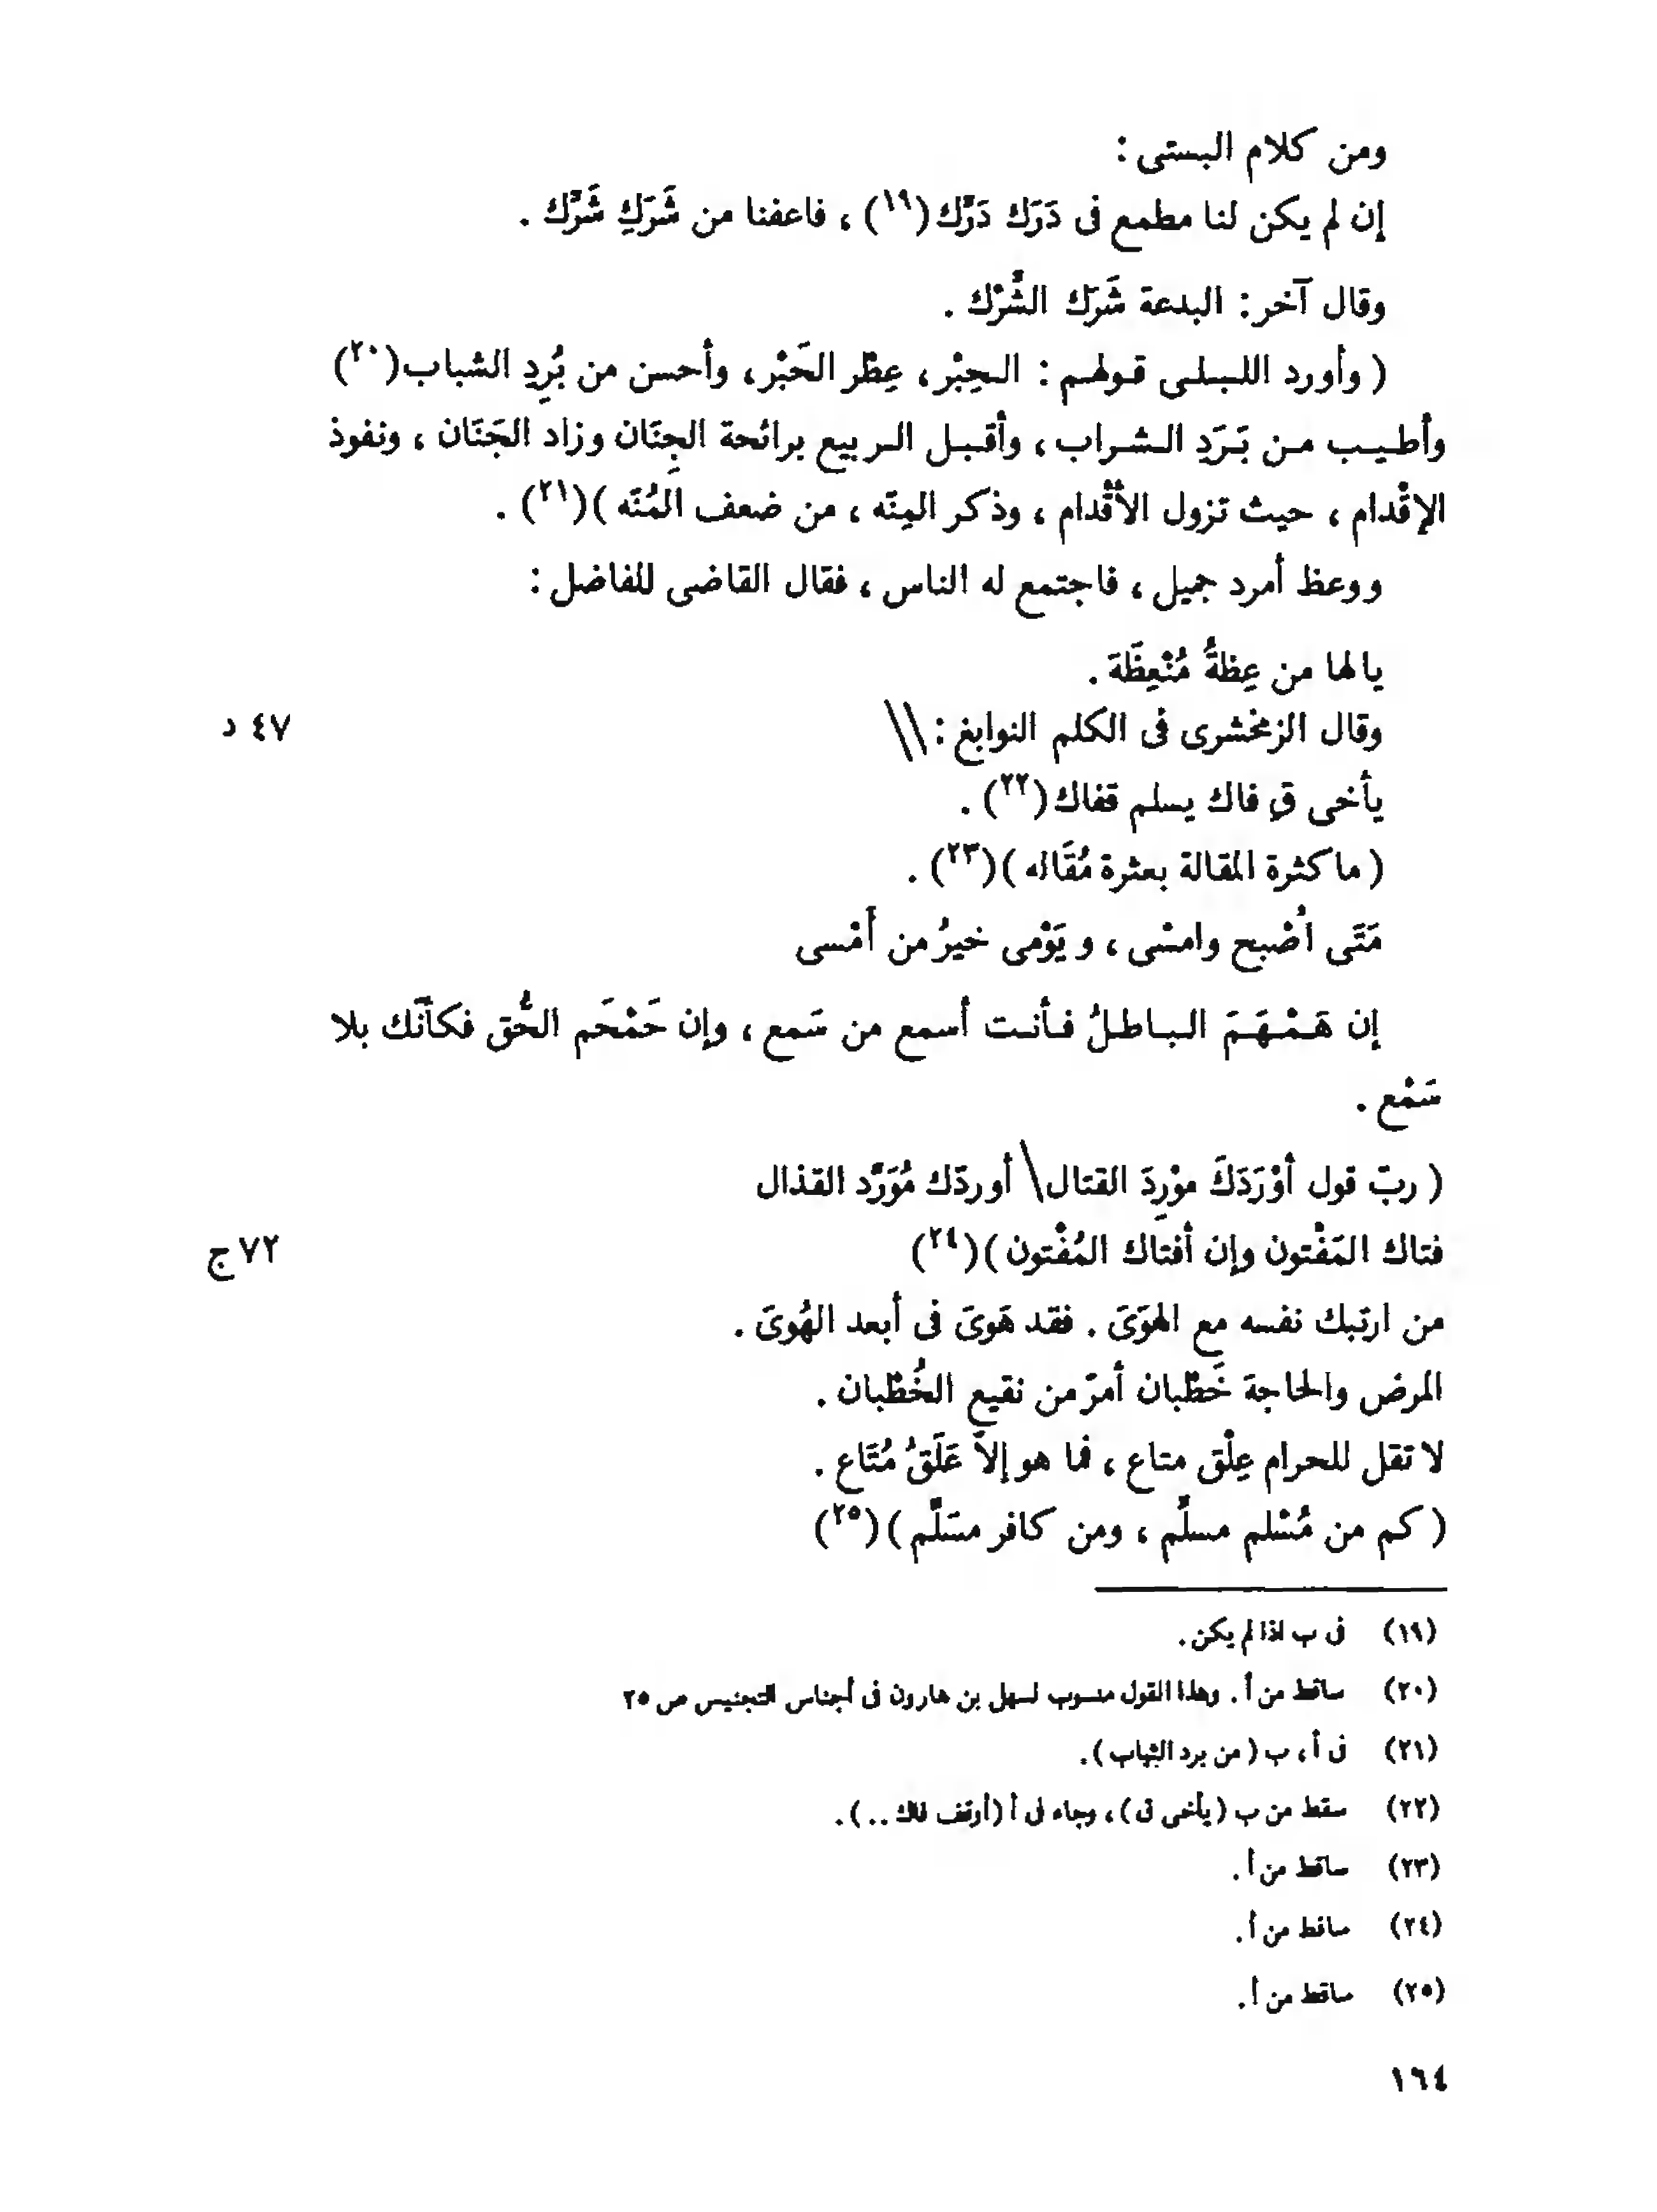 ومن كلام البستى :
إن لم يكن لنا مطمع فى دَرَك دَرَّك (١٩) ، فاعفنا من شَرَكِ شَرَّك .
وقال آخر : البدعة شَرَك الشِّرْك .
( وأورد اللبلى قولهم : الحِبْر ، عِطْر الحَبْر ، وأحسن من بُرِدِ الشباب (٢٠)
وأطيب من بَرَدِ الشراب ، وأقبل الربيع برائحة الجِنَان وزاد الجَنَان ، ونفوذ
الإقْدام ، حيث تزول الأقْدام ، وذكر المِنّه ، من ضعف المُنَّه ) (٢١) .
ووعظ أمرد جميل ، فاجتمع له الناس ، فقال القاضى للفاضل :
يالها من عِظةُ مُنْعِظَة .
وقال الزمخشرى فى الكلم النوابغ : \\
٤٧ د
يأخى قِ فاك يسلم قفاك (٢٢) .
( ما كثرة المقالة بعثرة مُقَاله ) (٢٣) .
مَتَى أُصْبح وامسْى ، ويَوْمى خيرُ من أَمْسى
إن هَمْهَمَ الباطلُ فأنت أسمع من سَمع ، وإن حَمْحَم الحُّق فكأنَّك بلا
سَمْع .
( ربّ قول أوْرَدَكَ موْرِدَ القتال \ أوردّك مُوَرَّد القذال
فتاك المَفْتون وإن أفتاك المُفْتون ) (٢٤)
٧٢ ج
من ارتبك نفسه مع الهَوَىَ . فقد هَوىَ فى أبعد الهُوىَ .
المرض والحاجة خَطْبان أمرّ من نقيع الخُطْبان .
لا تقل للحرام عِلْق متاع ، فما هو إلاّ عَلَقُ مُتَاع .
( كم من مُسْلم مسلِّم ، ومن كافر مسَلَّم ) (٢٥)
(١٩) فى ب اذا لم يكن .
(٢٠) ساقط من أ . وهذا القول منسوب لسهل بن هارون فى أجناس التجنيس ص ٢٥
(٢١) فى أ ، ب ( من برد الثياب ) .
(٢٢) سقط من ب ( يأخى ق ) ، وجاء فى أ ( أرقف فاك .. ) .
(٢٣) ساقط من أ .
(٢٤) ساقط من أ .
(٢٥) ساقط من أ .
١٦٤